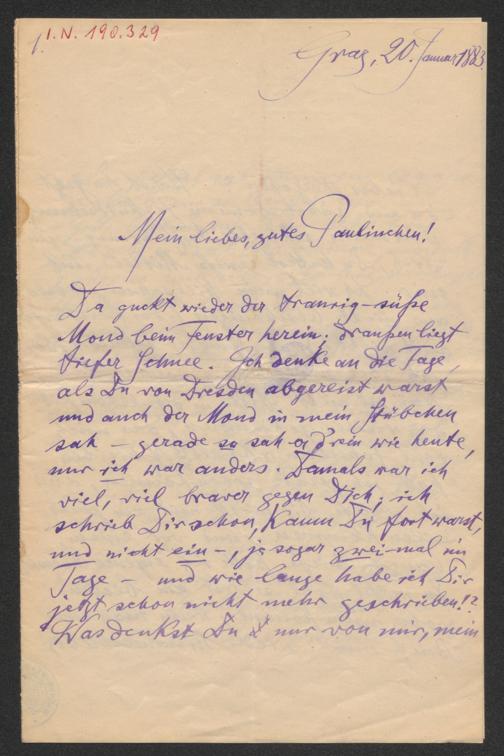 1. I.N. 190.329
Graz, 20. Januar 1883.
Mein liebes, gutes Paulinchen!
Da guckt wieder der traurig-süße
Mond beim Fenster herein; draußen liegt
tiefer Schnee. Ich denke an die Tage,
als Du von Dresden abgereist warst
und auch der Mond in mein Stübchen
sah – gerade so sah er d'rein wie heute,
nur ich war anders. Damals war ich
viel, viel braver gegen Dich; ich
schrieb Dir schon, kaum Du fort warst,
und nicht ein –, ja sogar zwei-mal im
Tage – und wie lange habe ich Dir
jetzt schon nicht mehr geschrieben!?
Was denkst Du nur von mir, mein